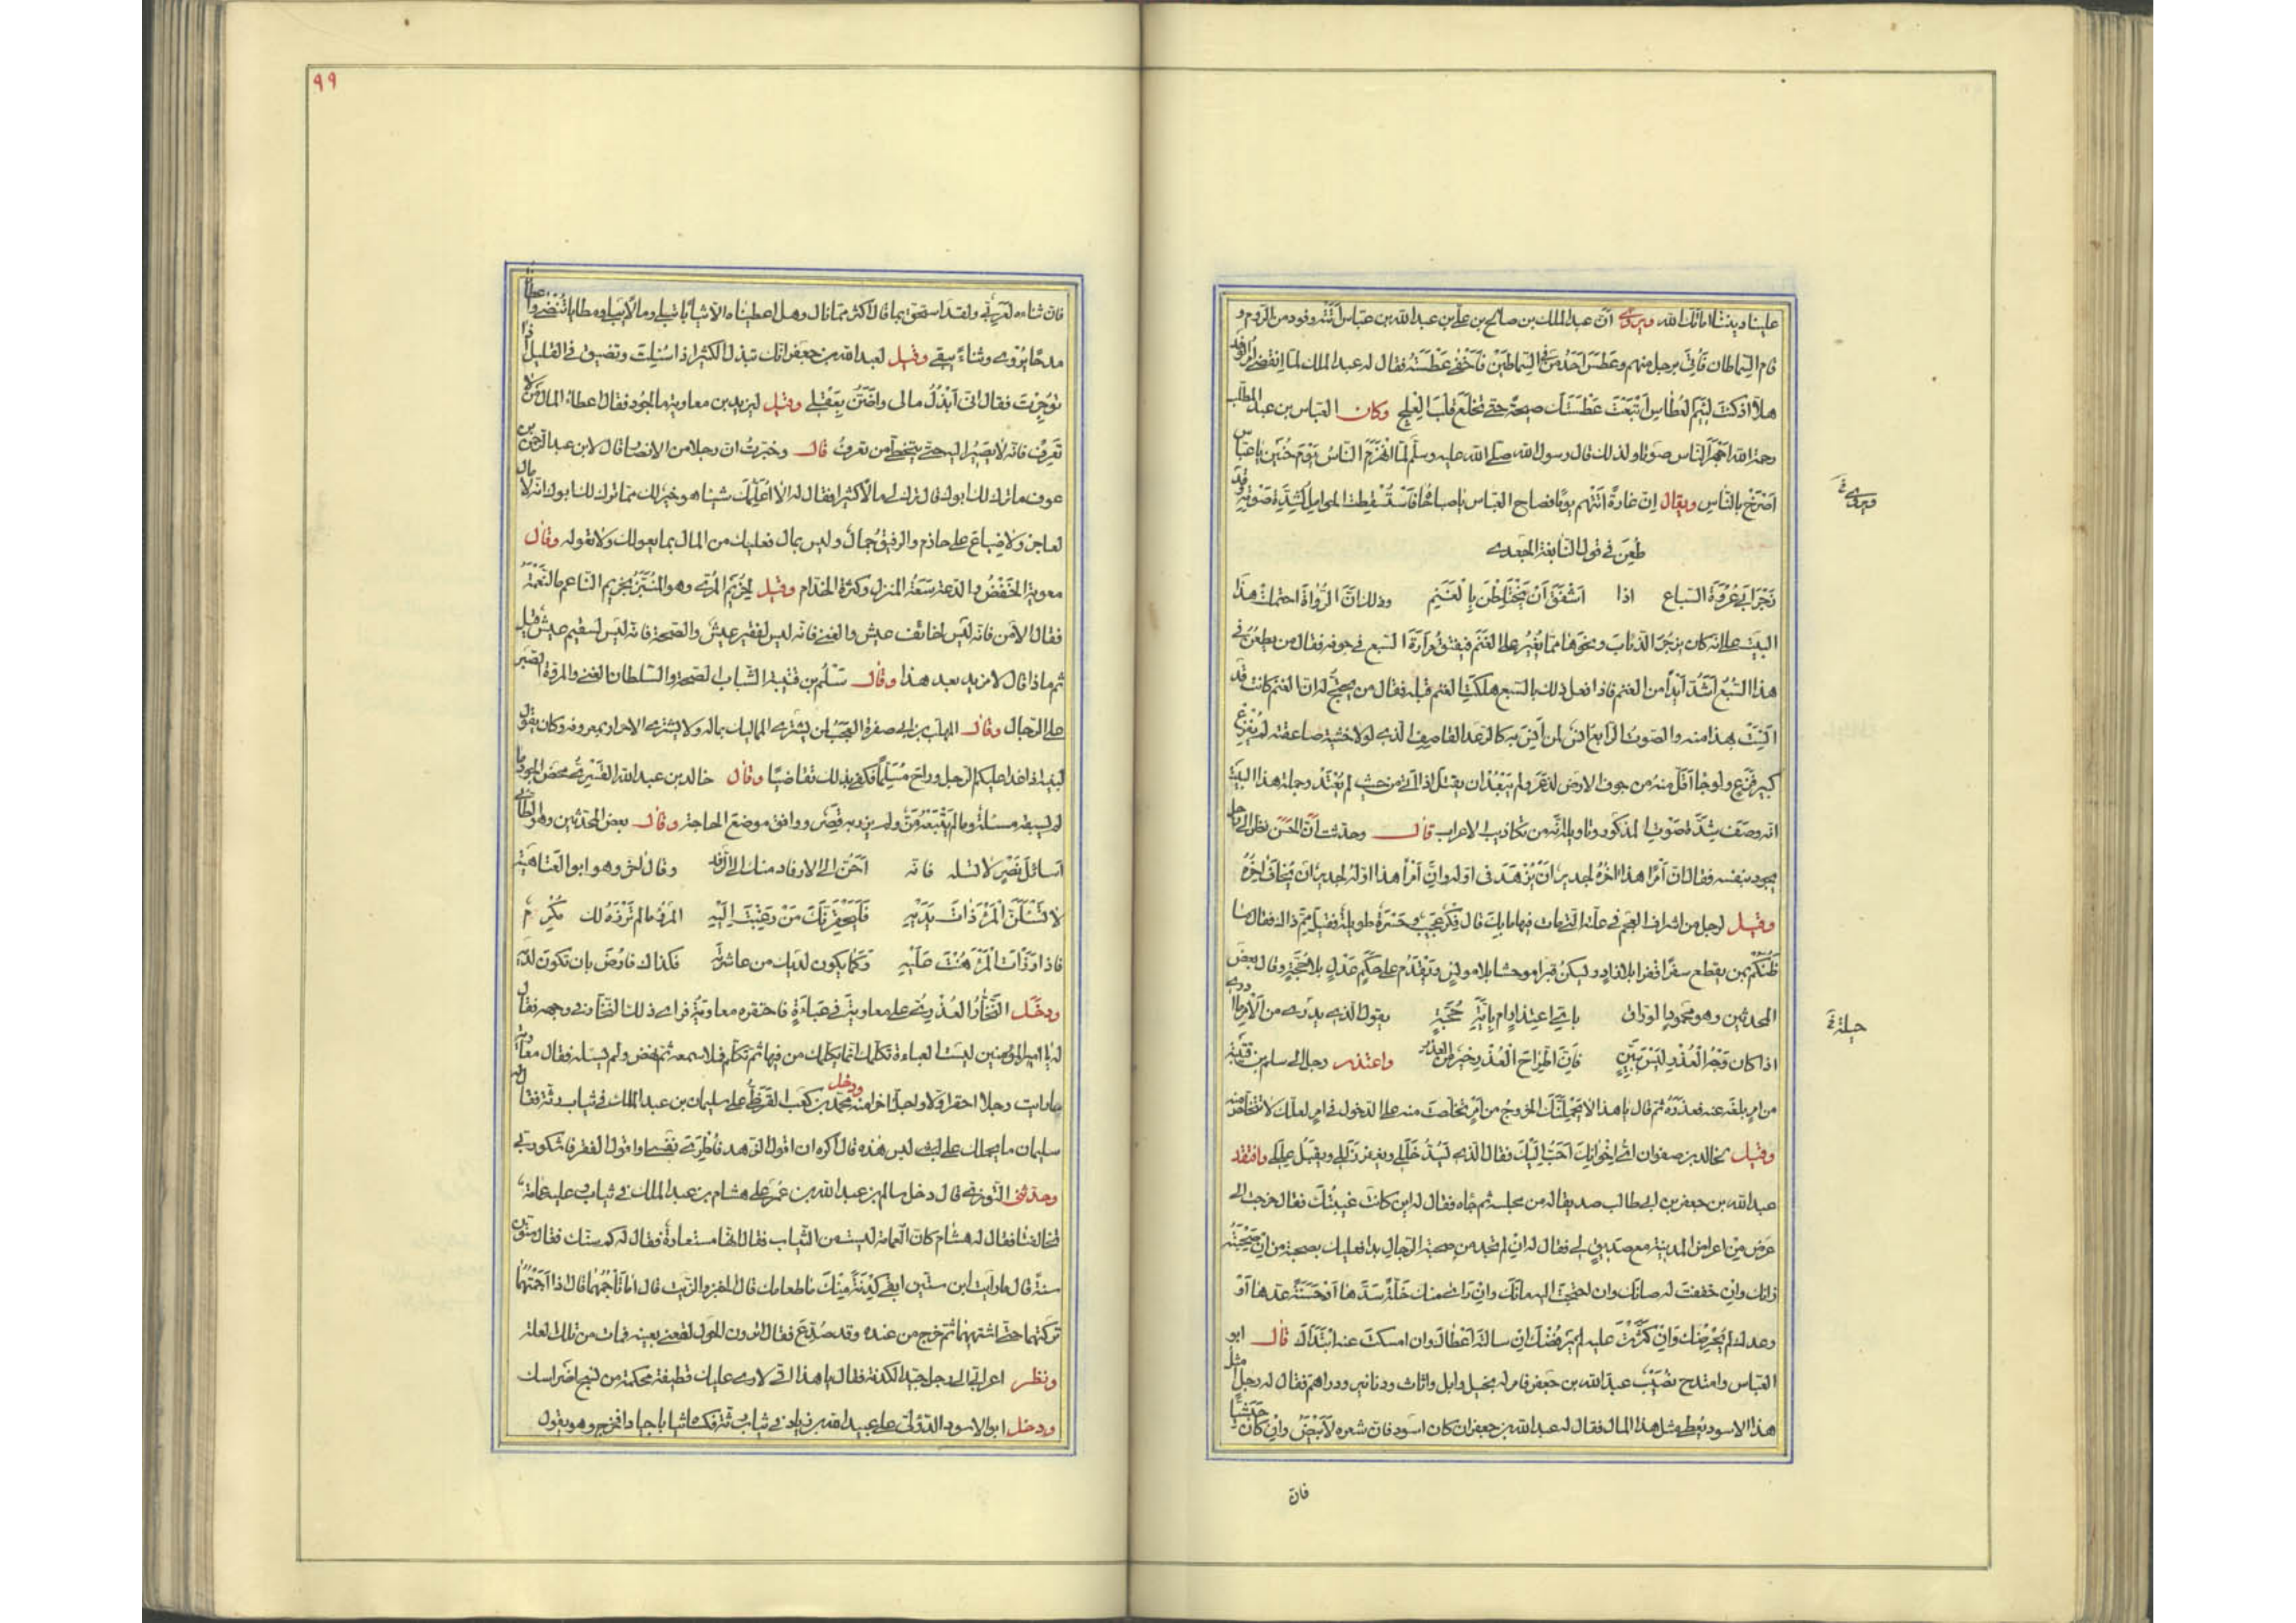 علينا وبيننا اماتك الله ويروى ان عبد الملك بن صالح بن علي بن عبد الله بن عباس اتته وفود من الروم و
قام السماطان فأتي برجل منهم وعطس احد من في السماطين فأخفى عطسته فقال له عبد الملك لما انقضى امر الوفد
هلا اذ كنت لئيم العطاس اتبعت عطستك صيحة حتى تخلع قلب العلج وكان العباس بن عبد المطلب
رحمة الله اجهر الناس صوتا ولذلك قال رسول الله صلى الله عليه وسلم لما انهزم الناس يوم حنين يا عباس
اصرخ بالناس ويقال ان غارة اتتهم يوما فصاح العباس يا صباحاه فاستسقطت الحوامل لشدة صوته وقد
طعن في قول النابغة الجعدي
زجر ابي عروة السباع اذا اشفق ان يختلطن بالغنم وذلك ان الرواة احتملت هذا
البيت على انه كان يزجر الذئاب ونحوها مما يغير على الغنم فيفتق مرارة السبع في جوفه فقال من يطعن في
هذا السبع اشد ايدا من الغنم فاذا فعل ذلك بالسبع هلكت الغنم قبله فقال من يحتج له ان الغنم كانت قد
انست بهذا منه والصوت الرائع انس لمن انس به كالرعد القاصف الذي لولا خشية صاعقته لم يفزع
كبير فزع ولو جا اقل منه من جوف الارض لذعر ولم يبعد ان يقتل اذا اتى من حيث لم يعتد وجملة هذا البيت
انه وصف شدة صوت المذكور وتاويله انه من تكاذيب الاعراب قال وحدثت ان الحسن نظر الى رجل
يجود بنفسه فقال ان امرا هذا اخره لجدير ان يزهد في اوله وان امرا هذا اوله لجدير ان يخاف اخره
وقيل لرجل من اشراف العجم في علته التي مات فيها ما بك قال فكر عجيب وحسرة طويلة فقيل مم ذاك فقال ما
ظنكم بمن يقطع سفرا قفرا بلا زاد ويسكن قبرا موحشا بلا مونس ويقدم على حكم عدل بلا حجة وقال بعض
المحدثين وهو محمود الوراق باي اعتذار ام باية حجة يقول الذي يدري من الامر لا ادري
اذا كان وجه العذر ليس ببين فان اطراح العذر خير من العذر واعتذر رجل الى سلم بن قتيبة
من امر بلغه عنه فعذره ثم قال يا هذا لا يحملنك الخروج من امر تخلصت منه على الدخول في امر لعلك لا تتخلص منه
وقيل لخالد بن صفوان اي اخوانك احب اليك فقال الذي يسد خللي ويغفر زللي ويقبل عللي وافتقد
عبد الله بن جعفر بن ابي طالب صديقا له من مجلسه ثم جاه فقال له اين كانت غيبتك فقال خرجت الى
عرض من اعراض المدينة مع صديق لي فقال له ان لم تجد من صحبة الرجال بدا فعليك بصحبة من ان صحبته
زانك وان خففت له صانك وان احتجت اليه مانك وان راى منك خلة سدها او حسنة عدها او
وعدك لم يجرضك وان كثرت عليه لم يرفضك ان سالته اعطاك وان امسكت عنه ابتداك قال ابو
العباس وامتدح نصيب عبد الله بن جعفر فامر له بخيل وابل واثاث ودنانير ودراهم فقال له رجل مثل
هذا الاسود يعطى مثل هذا المال فقال له عبد الله بن جعفر ان كان اسود فان شعره لابيض وان كان حبشيا
فان
ويروى
جملة
٩٩
فان ثناءه لعربي ولقد استحق بما قال اكثر مما نال وهل اعطيناه الا ثيابا تبلى ومالا يفنى ومطايا تنضى واعطانا
مدحا يروى وثناء يبقى وقيل لعبد الله بن جعفر انك تبذل الكثير اذا سئلت وتضيق في القليل اذا
توجرت فقال اني ابذل مالي واضن بعقلي وقيل ليزيد بن معاوية ما الجود فقال اعطاء المال من لا
تعرف فانه لا يصير اليه حتى يتخطى من تعرف قال وخبرت ان رجلا من الانصار قال لابن عبد الرحمن بن
عوف ما ترك لك ابوك قال ترك لي مالا كثيرا فقال له الا اعلمك شيئا هو خير لك مما ترك لك ابوك انه لا مال
لعاجز ولا ضياع على حازم والرقيق جمال وليس بمال فعليك من المال بما يعولك ولا تعوله وقال
معوية الخفض والدعة سعة المنزل وكثرة الخدام وقيل لخريم المري وهو المنبز بخريم الناعم ما النعمة
فقال الامن فانه ليس لخائف عيش والغنى فانه ليس لفقير عيش والصحة فانه ليس لسقيم عيش قيل
ثم ماذا قال لا مزيد بعد هذا وقال سلم بن قتيبة الشباب الصحة والسلطان الغنى والمروة الصبر
على الرجال وقال المهلب بن ابي صفرة العجب لمن يشتري المماليك بماله ولا يشتري الاحرار بمعروفه وكان يقول
لبنيه اذا غدا عليكم الرجل وراح مسلما فكفى بذلك تقاضيا وقال خالد بن عبد الله القسري محض الجود ما
لم تسبقه مسئلة وما لم يتبعه من ولم يزر به قصر ووافق موضع الحاجة وقال بعض المحدثين وهو الطائي
اسائل نصر لا تسله فانه احن الى الارفاد منك الى الرفد وقال اخر وهو ابو العتاهية
لا تسئلن المرء ذات يديه فليحقرنك من رغبت اليه المرء ما لم ترزه لك مكرم
فاذا رزأت المرء هنت عليه وكما يكون لديك من عاشرته فكذاك فارض بان تكون لديه
ودخل النخار العذري على معاوية في عباءة فاحتقره معاوية فراى ذلك النخار في وجهه فقال
له يا امير المؤمنين ليست العباءة تكلمك انما يكلمك من فيها ثم تكلم فملا سمعه ثم نهض ولم يسله فقال معاوية
ما رايت رجلا احقر اولا ولا اجل اخرا منه ودخل محمد بن كعب القرظي على سليمان بن عبد الملك في ثياب رثة فقال له
سليمان ما يحملك على لبس هذه قال اكره ان اقول الزهد فأطري نفسي او اقول الفقر فاشكو ربي
وحدثني التوزي قال دخل سالم بن عبد الله بن عمر على هشام بن عبد الملك في ثياب وعليه عمامة
تخالفها فقال له هشام كان العمامة ليست من الثياب فقال انها مستعارة فقال له كم سنك فقال ستون
سنة قال ما رايت ابن ستين ابقى كدنة منك ما طعامك قال الخبز والزيت قال اما تاجمهما قال اذا اجمتهما
تركتهما حتى اشتهيهما ثم خرج من عنده وقد صدع فقال اترون الاحول لقعني بعينه فمات من تلك العلة
ونظر اعرابي الى رجل جيد الكدنة فقال يا هذا اني لارى عليك قطيفة محكمة من نسج اضراسك
ودخل ابو الاسود الدؤلي على عبيد الله بن زياد في ثياب رثة فكساه ثيابا جيادا فخرج وهو يقول